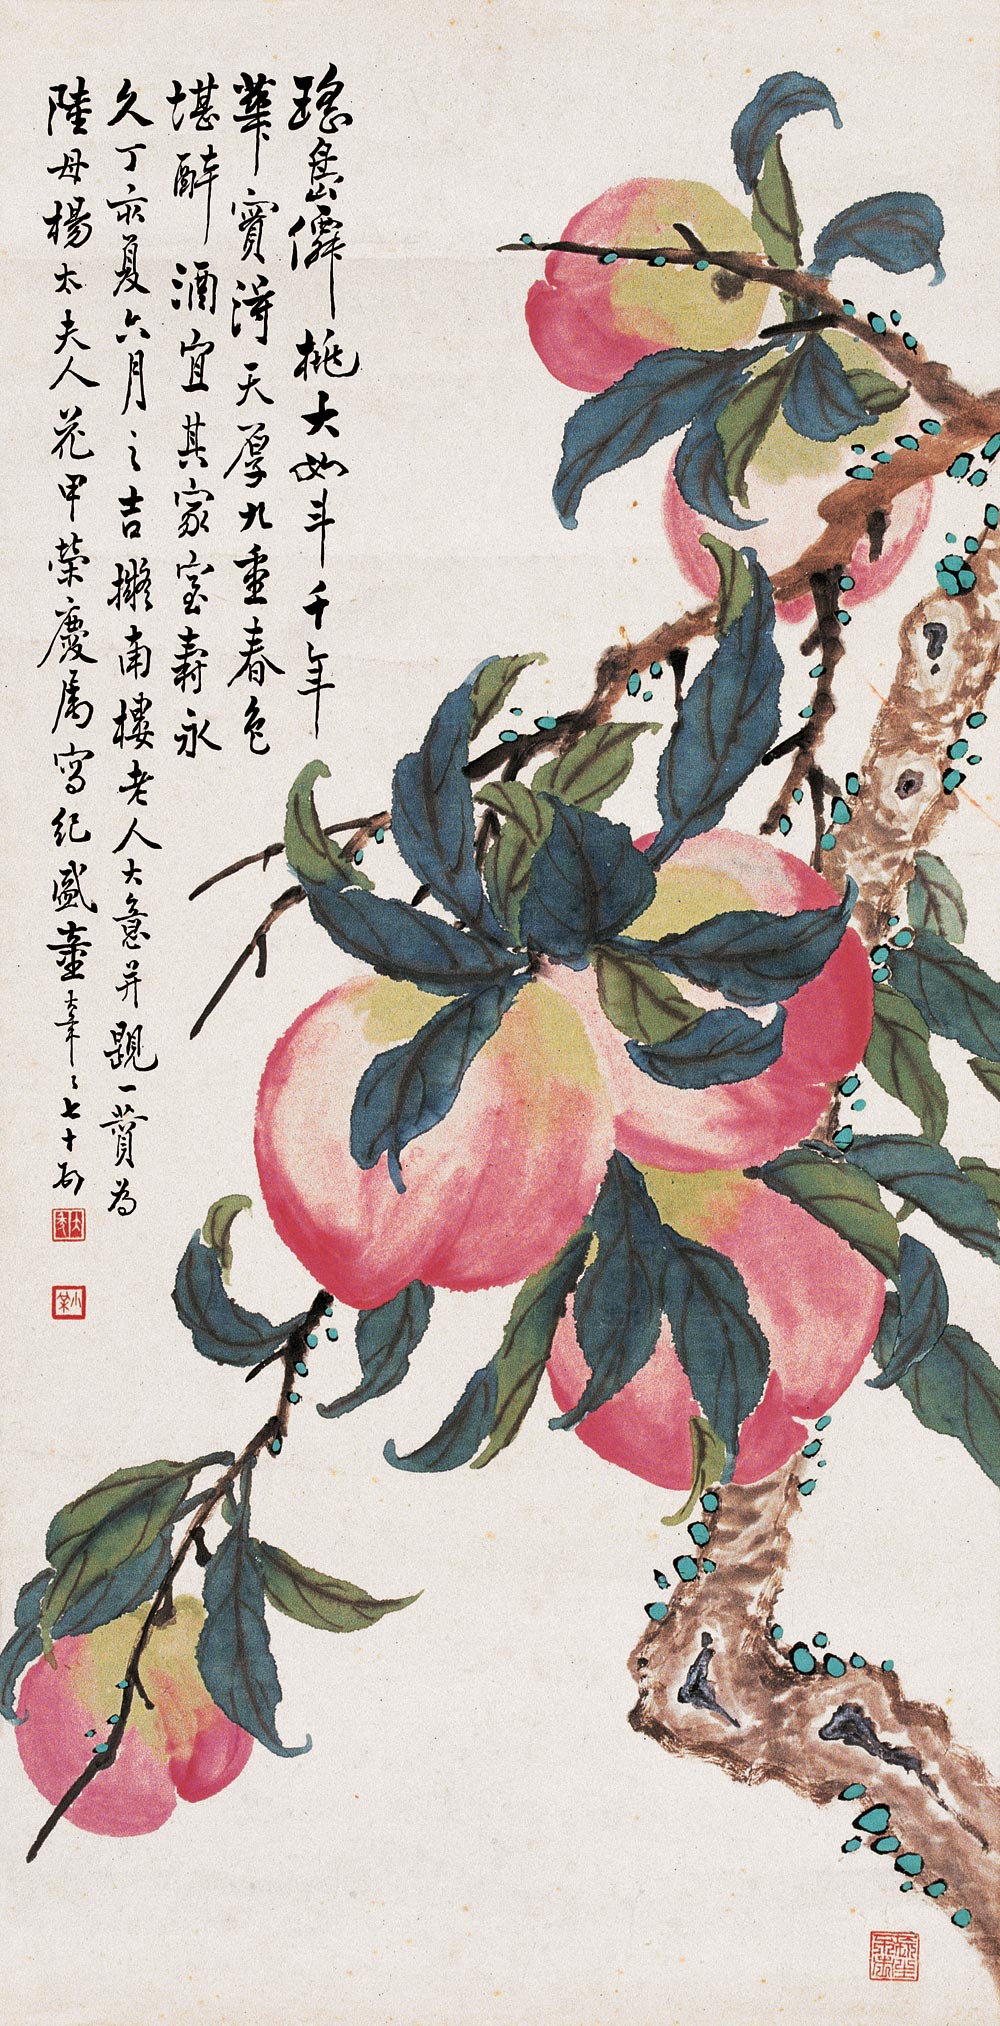 瑤島僊桃大如斗千年
華實得天厚九重春色
堪醉酒宜其家室壽永
久丁亥夏六月之吉擬南樓老人大意并題一贊為
陸母楊太夫人花甲榮慶屬寫紀盛童大年年七十有